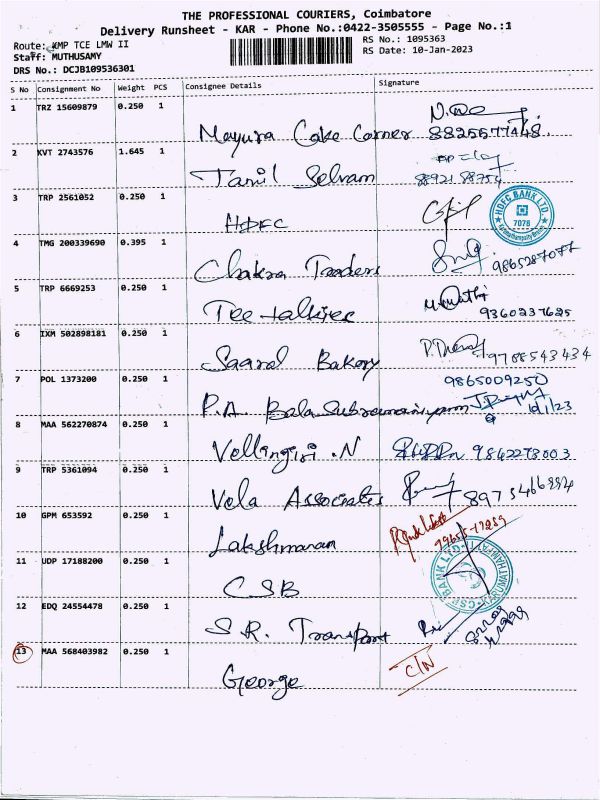 THE PROFESSIONAL COURIERS, Coimbatore
Delivery Runsheet - KAR - Phone No.:0422-3505555 - Page No.:1
Route: KMP TCE LMW II
RS No.: 1095363
Staff: MUTHUSAMY
RS Date: 10-Jan-2023
DRS No.: DCJB109536301
S No Consignment No Weight PCS Consignee Details Signature
1 TRZ 15609879 0.250 1
Mayura Cake Corner 8825677448.
2 KVT 2743576 1.645 1
Tamil Selvam
3 TRP 2561052 0.250 1
HDFC
HDFC BANK LTD
7078
4 TMG 200339690 0.395 1
Chakra Traders 9865287077
5 TRP 6669253 0.250 1
9360237625
6 IXM 502898181 0.250 1
Saaral Bakery 9788543434
7 POL 1373200 0.250 1
9865009250
P.A. Balasubramaniyam 10/1/23
8 MAA 562270874 0.250 1
Vellingiri .N 9842278003
9 TRP 5361094 0.250 1
Vela Associates
10 GPM 653592 0.250 1
Lakshmanan
11 UDP 17188200 0.250 1
CSB
CSB BANK LTD
12 EDQ 24554478 0.250 1
S.R. Transport
13 MAA 568403982 0.250 1
C/N
George